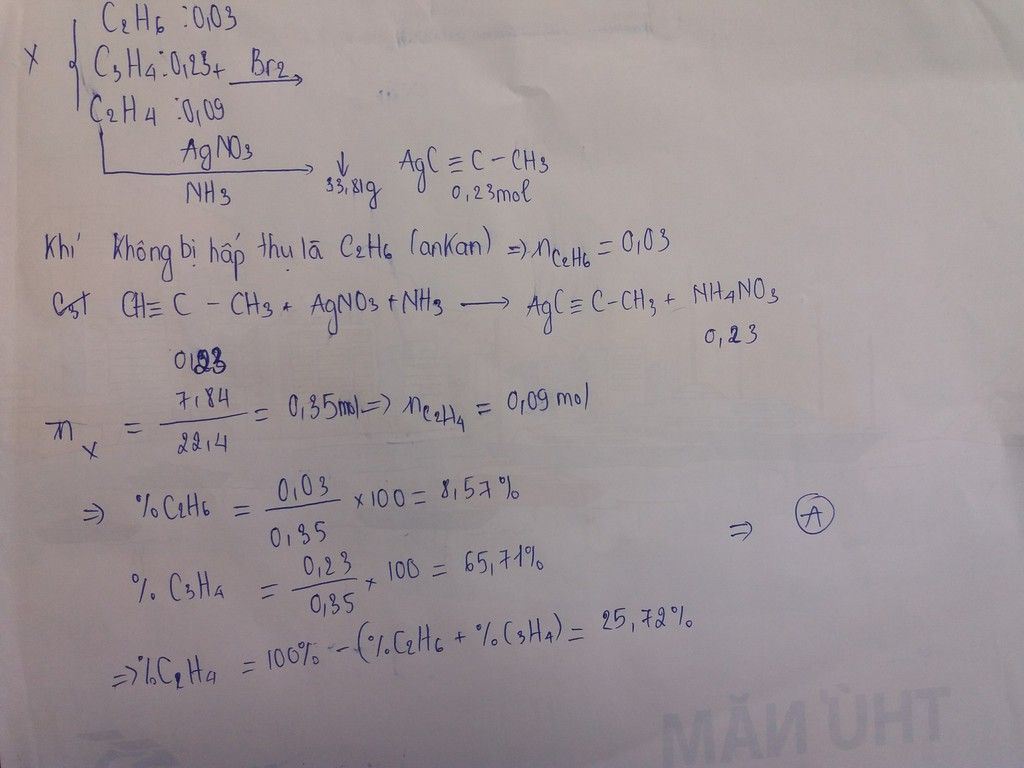 C2H6 : 0,03
X { C3H4 : 0,23 + Br2 →
C2H4 : 0,09
AgNO3
NH3 → ↓ 33,81g AgC ≡ C – CH3
0,23mol
Khí không bị hấp thụ là C2H6 (ankan) => nC2H6 = 0,03
CH ≡ C – CH3 + AgNO3 + NH3 → AgC ≡ C – CH3 + NH4NO3
0,23 0,23
nX = 7,84 / 22,4 = 0,35mol => nC2H4 = 0,09 mol
=> %C2H6 = 0,03 / 0,35 × 100 = 8,57%
% C3H4 = 0,23 / 0,35 × 100 = 65,71% => A
=> %C2H4 = 100% – (%C2H6 + %C3H4) = 25,72%
THỨ NĂM